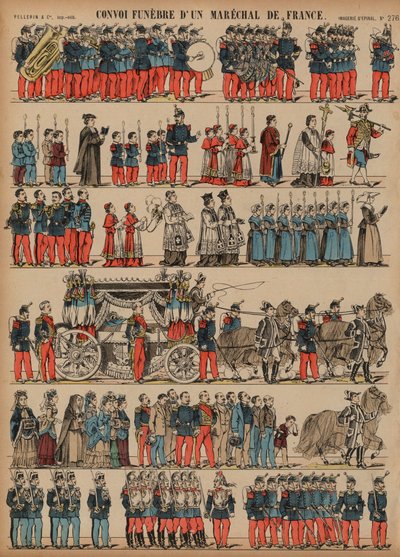 PELLERIN & Cie, imp.-édit.
CONVOI FUNÈBRE D'UN MARÉCHAL DE FRANCE.
IMAGERIE D'ÉPINAL, No 276